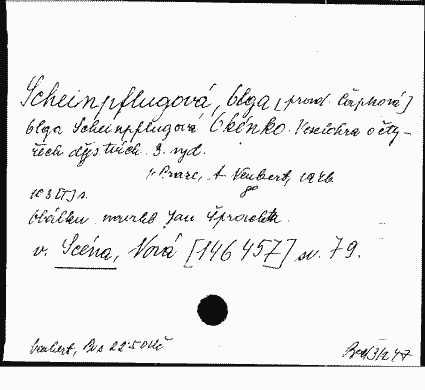 Scheinpflugová, Olga [prov. Čapková]
Olga Scheinpflugová Okénko. Veselohra o čty-
řech dějstvích. 3. vyd.
V Praze, A. Neubert, 1946.
103 [1] s.
Obálku navrhl Jan
v. Scéna, Nová [146457] sv. 79.
Neubert, Brož 22.50 Kč
47